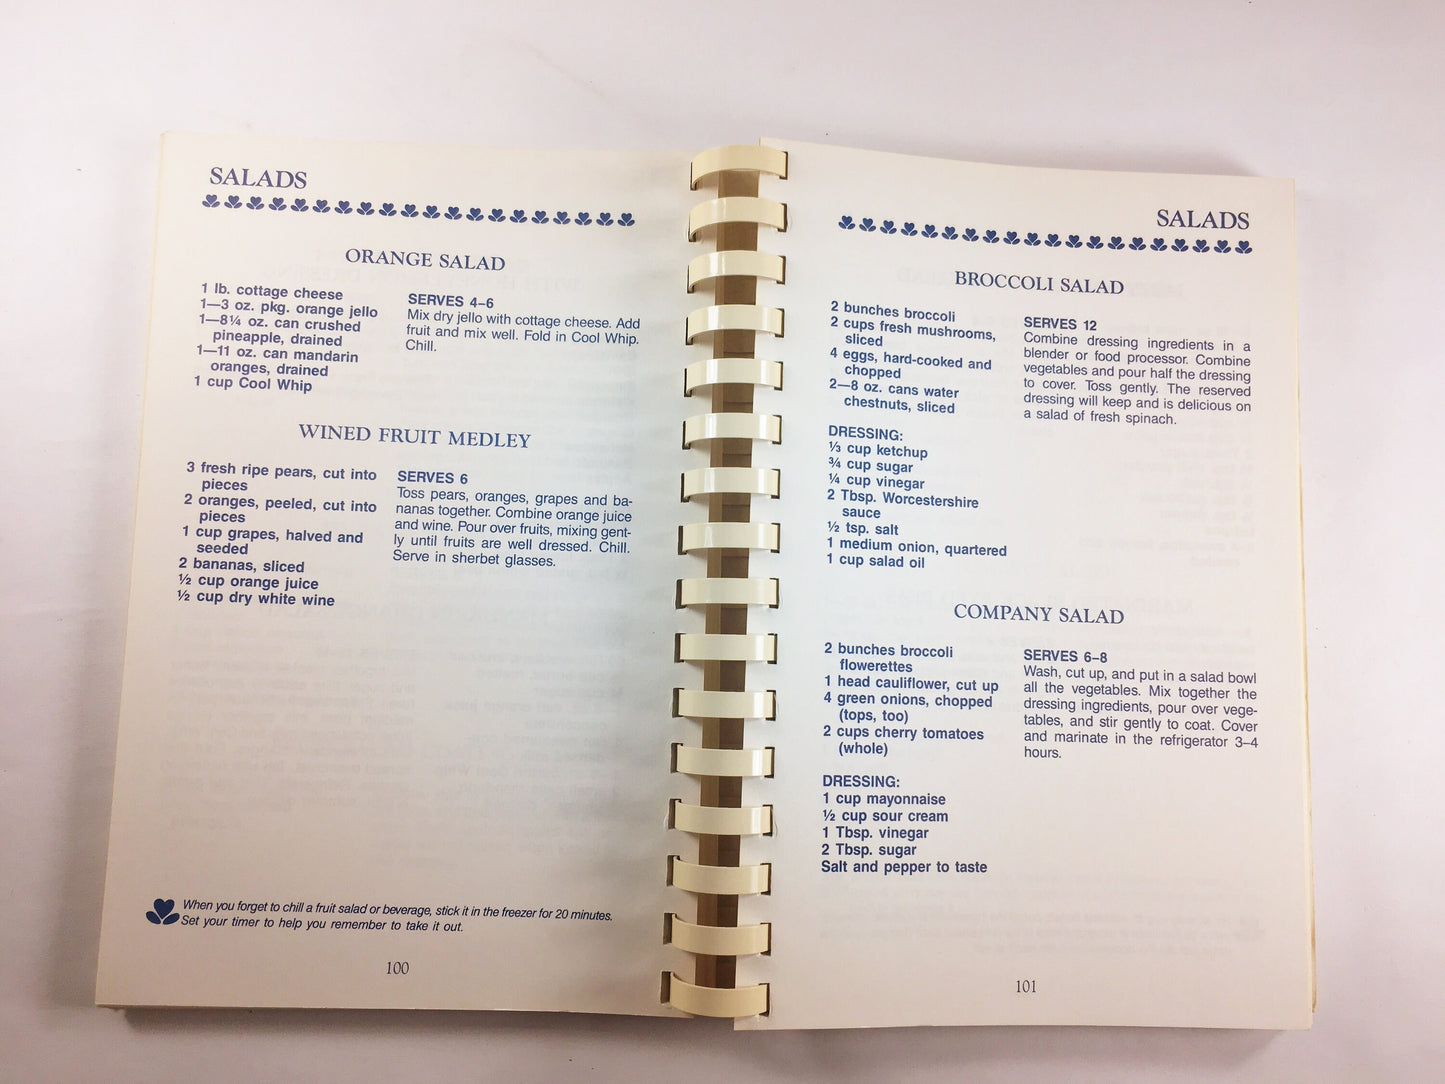 SALADS
ORANGE SALAD
1 lb. cottage cheese
1—3 oz. pkg. orange jello
1—8¼ oz. can crushed
pineapple, drained
1—11 oz. can mandarin
oranges, drained
1 cup Cool Whip
SERVES 4–6
Mix dry jello with cottage cheese. Add
fruit and mix well. Fold in Cool Whip.
Chill.
WINED FRUIT MEDLEY
3 fresh ripe pears, cut into
pieces
2 oranges, peeled, cut into
pieces
1 cup grapes, halved and
seeded
2 bananas, sliced
½ cup orange juice
½ cup dry white wine
SERVES 6
Toss pears, oranges, grapes and ba-
nanas together. Combine orange juice
and wine. Pour over fruits, mixing gent-
ly until fruits are well dressed. Chill.
Serve in sherbet glasses.
When you forget to chill a fruit salad or beverage, stick it in the freezer for 20 minutes.
Set your timer to help you remember to take it out.
100
SALADS
BROCCOLI SALAD
2 bunches broccoli
2 cups fresh mushrooms,
sliced
4 eggs, hard-cooked and
chopped
2—8 oz. cans water
chestnuts, sliced
DRESSING:
⅓ cup ketchup
¾ cup sugar
¼ cup vinegar
2 Tbsp. Worcestershire
sauce
½ tsp. salt
1 medium onion, quartered
1 cup salad oil
SERVES 12
Combine dressing ingredients in a
blender or food processor. Combine
vegetables and pour half the dressing
to cover. Toss gently. The reserved
dressing will keep and is delicious on
a salad of fresh spinach.
COMPANY SALAD
2 bunches broccoli
flowerettes
1 head cauliflower, cut up
4 green onions, chopped
(tops, too)
2 cups cherry tomatoes
(whole)
DRESSING:
1 cup mayonnaise
½ cup sour cream
1 Tbsp. vinegar
2 Tbsp. sugar
Salt and pepper to taste
SERVES 6–8
Wash, cut up, and put in a salad bowl
all the vegetables. Mix together the
dressing ingredients, pour over vege-
tables, and stir gently to coat. Cover
and marinate in the refrigerator 3–4
hours.
101